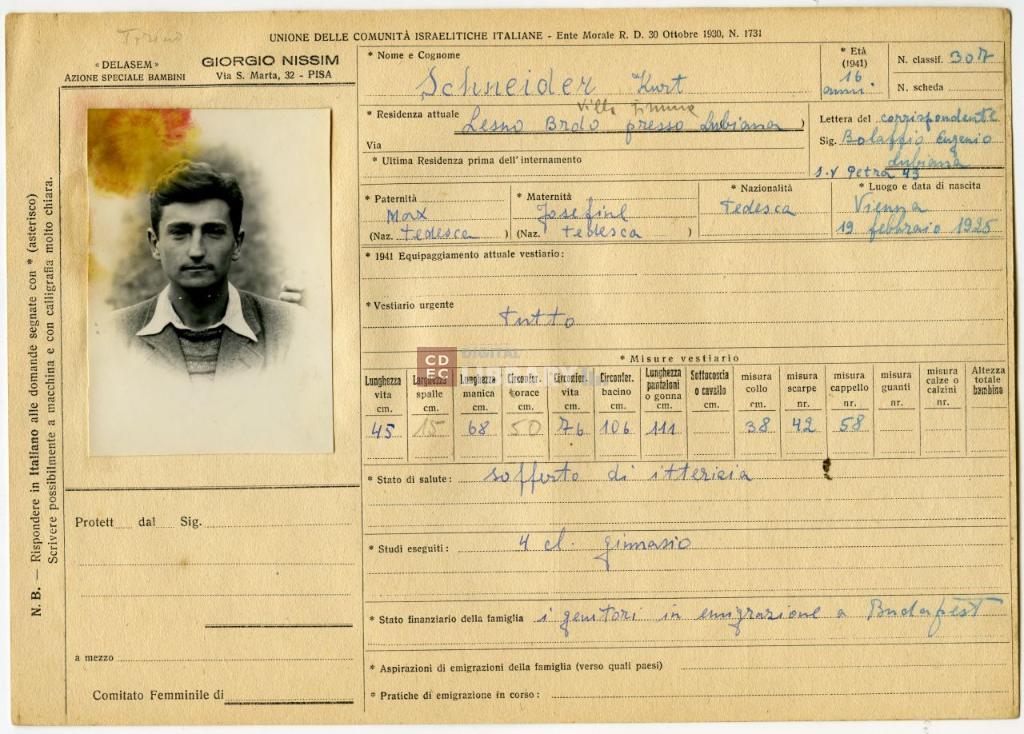 Torino
UNIONE DELLE COMUNITÀ ISRAELITICHE ITALIANE - Ente Morale R. D. 30 Ottobre 1930, N. 1731
« DELASEM »
AZIONE SPECIALE BAMBINI
GIORGIO NISSIM
Via S. Marta, 32 - PISA
* Nome e Cognome
Schneider Kurt
* Età
(1941)
16
anni
N. classif. 307
N. scheda
* Residenza attuale Lesno Brdo presso Lubiana )
Villa
Via
* Ultima Residenza prima dell'internamento
Lettera del corrispondente
Sig. Bolaffio Eugenio
Lubiana
s.v Petra 43
* Paternità
Max
(Naz. tedesca )
* Maternità
Josefine
(Naz. tedesca )
* Nazionalità
tedesca
* Luogo e data di nascita
Vienna
19 febbraio 1925
* 1941 Equipaggiamento attuale vestiario:
* Vestiario urgente
tutto
CD EC DIGITAL LIBRARY
* Misure vestiario
Lunghezza vita cm.
Larghezza spalle cm.
Lunghezza manica cm.
Circonfer. torace cm.
Circonfer. vita cm.
Circonfer. bacino cm.
Lunghezza pantaloni o gonna cm.
Sottocoscia o cavallo cm.
misura collo cm.
misura scarpe nr.
misura cappello nr.
misura guanti nr.
misura calze o calzini nr.
Altezza totale bambino
45 15 68 50 76 106 111 38 42 58
* Stato di salute: sofferto di itterizia
* Studi eseguiti: 4 cl. ginnasio
* Stato finanziario della famiglia i genitori in emigrazione a Budapest
* Aspirazioni di emigrazioni della famiglia (verso quali paesi)
* Pratiche di emigrazione in corso:
Protett dal Sig.
a mezzo
Comitato Femminile di
N. B. — Rispondere in Italiano alle domande segnate con * (asterisco)
Scrivere possibilmente a macchina e con calligrafia molto chiara.